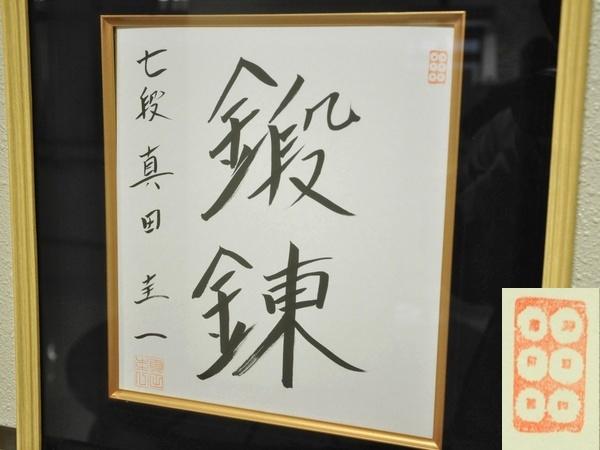 鍛錬
七段 真田圭一